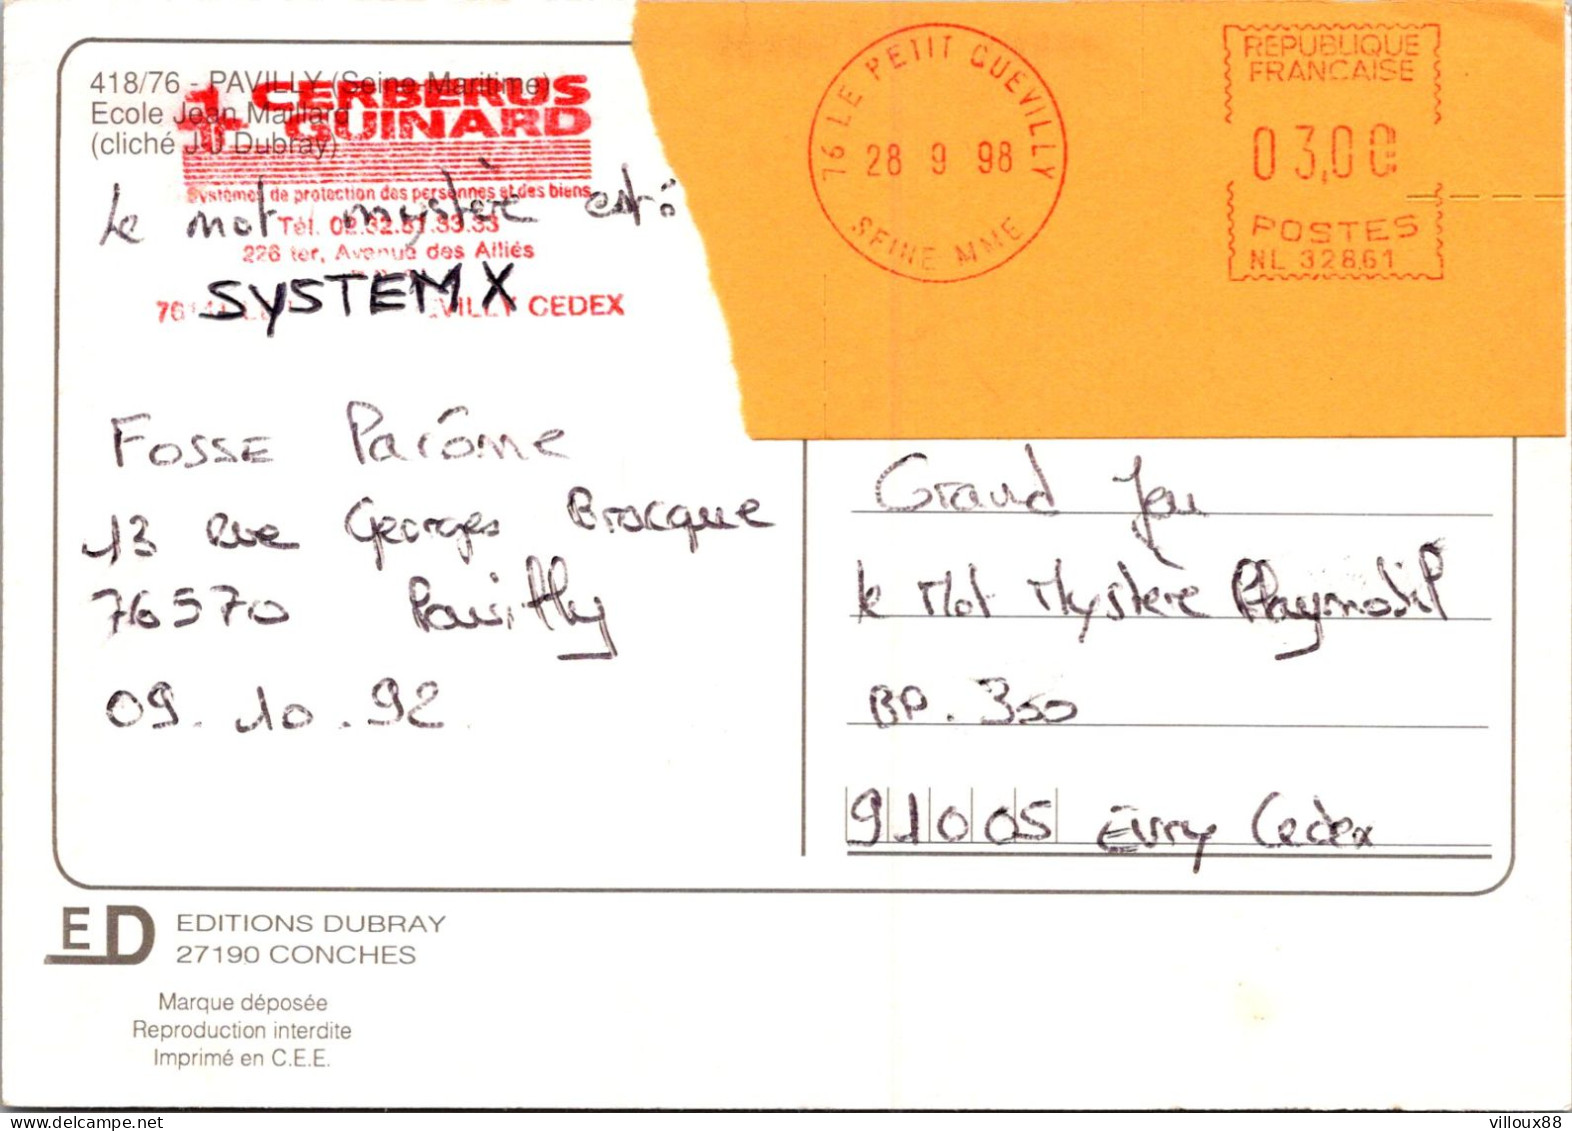 418/76 - PAVILLY (Seine-Maritime)
Ecole Jean Maillard
(cliché J-J Dubray)
CERBERUS
GUINARD
Systèmes de protection des personnes et des biens
Tél. 02.32.81.33.33
226 ter, Avenue des Alliés
VILLY CEDEX
Le mot mystère est:
SYSTEM X
FOSSE Parôme
13 rue Georges Bracque
76570 Pavilly
09.10.92
76 LE PETIT QUEVILLY
28 9 98
SEINE MME
REPUBLIQUE
FRANCAISE
03,00
POSTES
NL 32861
Grand Jeu
le Mot Mystère Playmobil
BP. 350
91005 Evry Cedex
ED
EDITIONS DUBRAY
27190 CONCHES
Marque déposée
Reproduction interdite
Imprimé en C.E.E.
villoux88